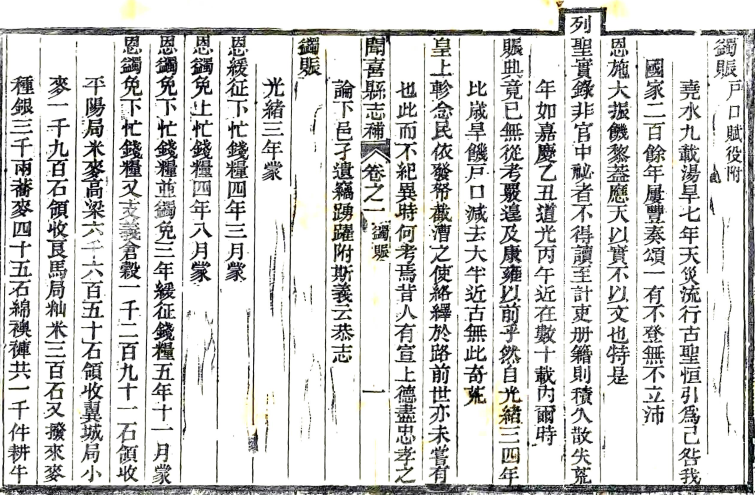 蠲賑戶口賦役附
堯水九載湯旱七年天災流行古聖恒引爲己咎我
國家二百餘年屢豐奏頌一有不登無不立沛
恩施大振饑黎葢應天以實不以文也特是
列聖實錄非官中祕者不得讀至計吏册籍則積久散失荒
年如嘉慶乙丑道光丙午近在數十載內爾時
賑典竟已無從考覈遑及康雍以前乎然自光緒三四年
比歲旱饑戶口減去大半近古無此奇荒
皇上軫念民依發帑截漕之使絡繹於路前世亦未嘗有
也此而不紀異時何考焉昔人有宣上德盡忠孝之
聞喜縣志補 卷之一 蠲賑 一
論下邑孑遺竊踴躍附斯義云恭志
蠲賑
光緒三年蒙
恩緩征下忙錢糧四年三月蒙
恩蠲免上忙錢糧四年八月蒙
恩蠲免下忙錢糧並蠲免三年緩征錢糧五年十一月蒙
恩蠲免下忙錢糧又支義倉穀一千二百九十一石領收
平陽局米麥高梁六千六百五十石領收翼城局小
麥一千九百石領收艮馬局籼米三百石又撥來麥
種銀三千兩蕎麥四十五石綿襖褲共一千件耕牛